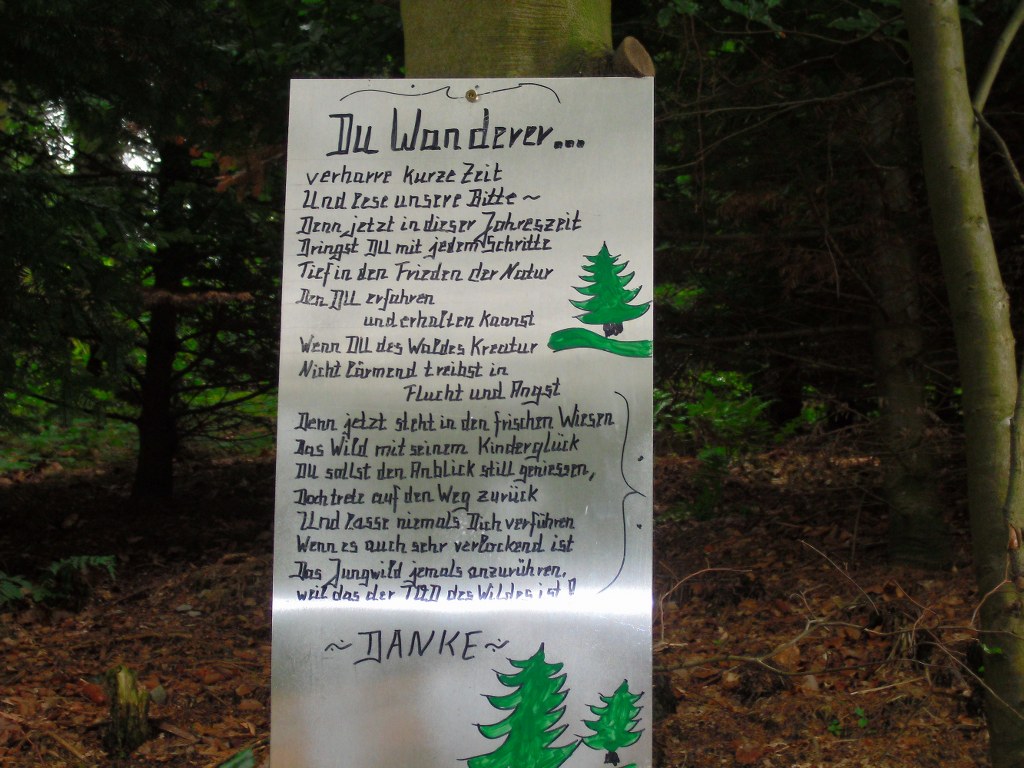 Du Wanderer...
verharre kurze Zeit
Und lese unsere Bitte ~
Denn jetzt in dieser Jahreszeit
Dringst DU mit jedem Schritte
Tief in den Frieden der Natur
Den DU erfahren
und erhalten kannst
Wenn DU des Waldes Kreatur
Nicht lärmend treibst in
Flucht und Angst
Denn jetzt steht in den frischen Wiesen
Das Wild mit seinem Kinderglück
DU sollst den Anblick still geniessen,
Doch trete auf den Weg zurück
Und lasse niemals Dich verführen
Wenn es auch sehr verlockend ist
Das Jungwild jemals anzurühren,
weil das der TOD des Wildes ist!
~ DANKE ~